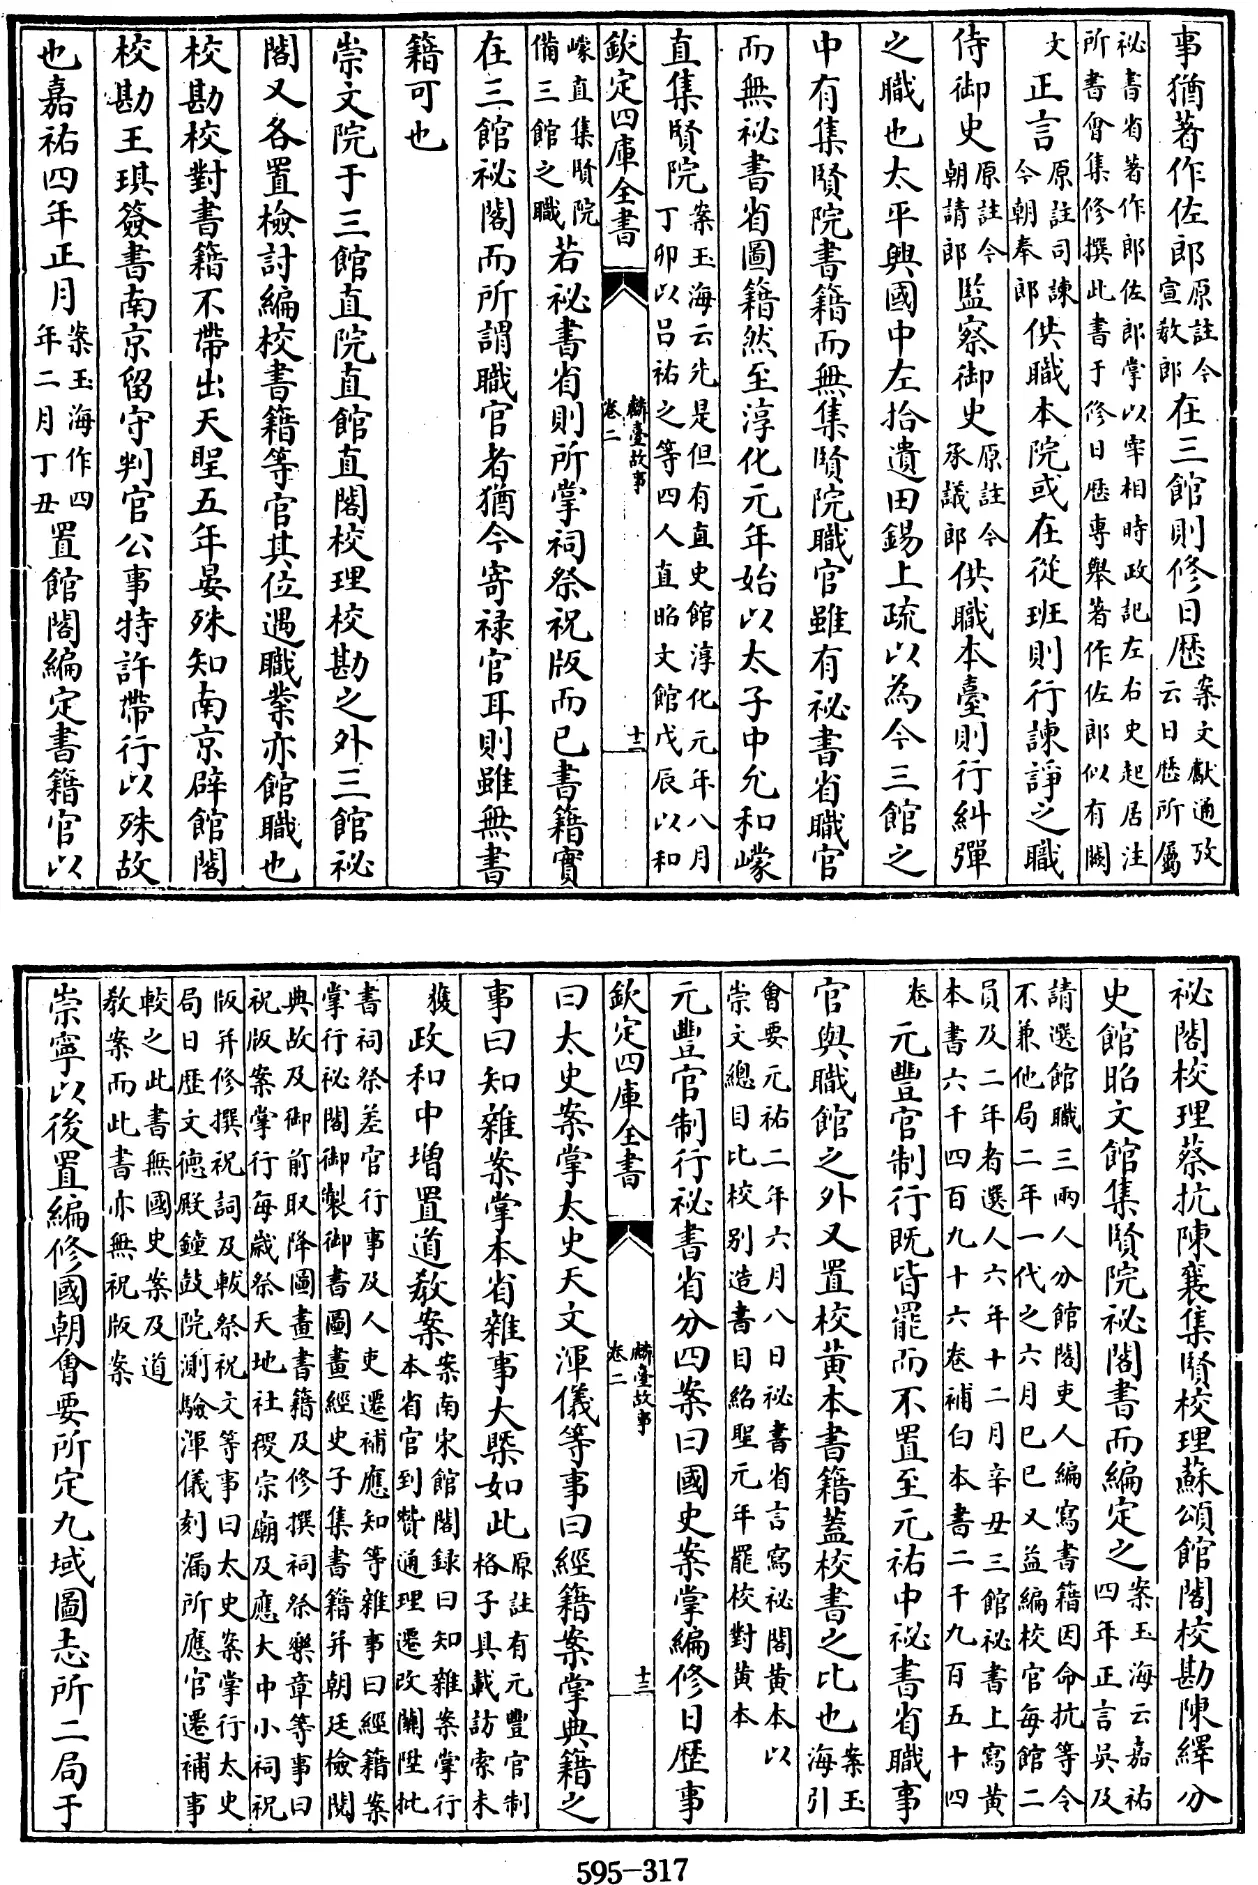 事猶著作佐郎原註今宣敎郎在三館則修日歴案文獻通攷云日歴所屬
祕書省著作郎佐郎掌以宰相時政記左右史起居注所書會集修撰此書于修日歴專舉著作佐郎似有闕
文正言原註司諫今朝奉郎供職本院或在從班則行諫諍之職
侍御史原註今朝請郎監察御史原註今承議郎供職本臺則行糾彈
之職也太平興國中左拾遺田錫上疏以為今三館之
中有集賢院書籍而無集賢院職官雖有祕書省職官
而無祕書省圖籍然至淳化元年始以太子中允和㠓
直集賢院案玉海云先是但有直史館淳化元年八月丁卯以呂祐之等四人直昭文館戊辰以和
欽定四庫全書
麟臺故事
卷二
十二
㠓直集賢院備三館之職若祕書省則所掌祠祭祝版而已書籍實
在三館祕閣而所謂職官者猶今寄禄官耳則雖無書
籍可也
崇文院于三館直院直館直閣校理校勘之外三館祕
閣又各置檢討編校書籍等官其位遇職業亦館職也
校勘校對書籍不帶出天聖五年晏殊知南京辟館閣
校勘王琪簽書南京留守判官公事特許帶行以殊故
也嘉祐四年正月案玉海作四年二月丁丑置館閣編定書籍官以
祕閣校理蔡抗陳襄集賢校理蘇頌館閣校勘陳繹分
史館昭文館集賢院祕閣書而編定之案玉海云嘉祐四年正言吳及
請選館職三兩人分館閣吏人編寫書籍因命抗等令不兼他局二年一代之六月己巳又益編校官每館二
員及二年者選人六年十二月辛丑三館祕書上寫黄本書六千四百九十六卷補白本書二千九百五十四
卷元豐官制行既皆罷而不置至元祐中祕書省職事
官與職館之外又置校黄本書籍蓋校書之比也案玉海引
會要元祐二年六月八日祕書省言寫祕閣黄本以崇文總目比校别造書目紹聖元年罷校對黄本
元豐官制行祕書省分四案曰國史案掌編修日歴事
欽定四庫全書
麟臺故事
卷二
十三
曰太史案掌太史天文渾儀等事曰經籍案掌典籍之
事曰知雜案掌本省雜事大槩如此原註有元豐官制格子具載訪索未
獲政和中増置道敎案案南宋館閣録曰知雜案掌行本省官到贊通理遷改關陞批
書祠祭差官行事及人吏遷補應知等雜事曰經籍案掌行祕閣御製御書圖畫經史子集書籍并朝廷檢閱
典故及御前取降圖畫書籍及修撰祠祭樂章等事曰祝版案掌行每歲祭天地社稷宗廟及應大中小祠祝
版并修撰祝詞及軷祭祝文等事曰太史案掌行太史局日歴文德殿鐘鼓院測驗渾儀刻漏所應官遷補事
較之此書無國史案及道敎案而此書亦無祝版案
崇寧以後置編修國朝會要所定九域圖志所二局于
595-317